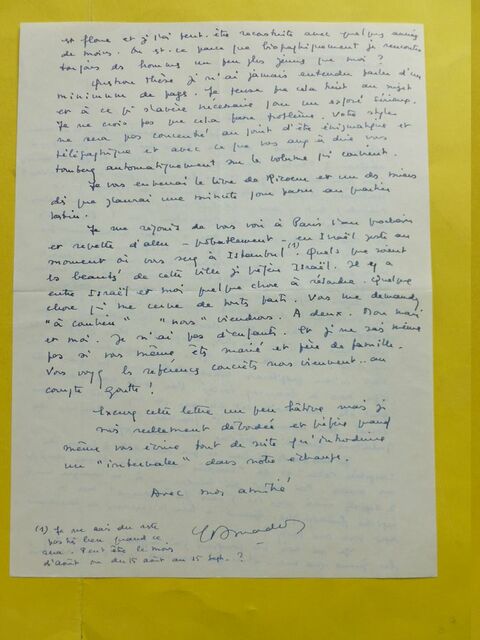 est floue et je l'ai peut-être reconstruite avec quelques années
de moins. Ou est-ce parce que biographiquement je rencontre
toujours des hommes un peu plus jeunes que moi ?
Question thèse je n'ai jamais entendu parler d'un
minimum de pages. Je pense que cela tient au sujet
et à ce qui s'avère nécessaire pour un exposé sérieux.
Je ne crois pas que cela fasse problème. Votre style
ne sera pas concentré au point d'être énigmatique et
télégraphique et avec ce que vous avez à dire vous
tomberez automatiquement sur le volume qui convient.
Je vous enverrai le livre de Ricoeur et un des miens
dès que j'aurai une minute pour passer au quartier
latin.
Je me réjouis de vous voir à Paris l'an prochain
et regrette d'aller - probablement - en Israël juste au
moment où vous serez à Istanbul (1). Quels que soient
les beautés de cette ville je préfère Israël. Il y a
entre Israël et moi quelque chose à résoudre. Quelque
chose qui me cerne de toutes parts. Vous me demandez
"à combien" "nous" viendrons. A deux. Mon mari
et moi. Je n'ai pas d'enfants. Et je ne sais même
pas si vous même êtes marié et père de famille.
Vous voyez les références concrètes nous viennent.. au
compte goutte !
Excusez cette lettre un peu hâtive mais je
suis réellement débordée et préfère quand
même vous écrire tout de suite qu'introduire
un "intervalle" dans notre échange.
Avec mes amitiés
(1) Je ne sais du reste
pas très bien quand ce
sera. Peut être le mois
d'août ou du 15 août au 15 sept. ?